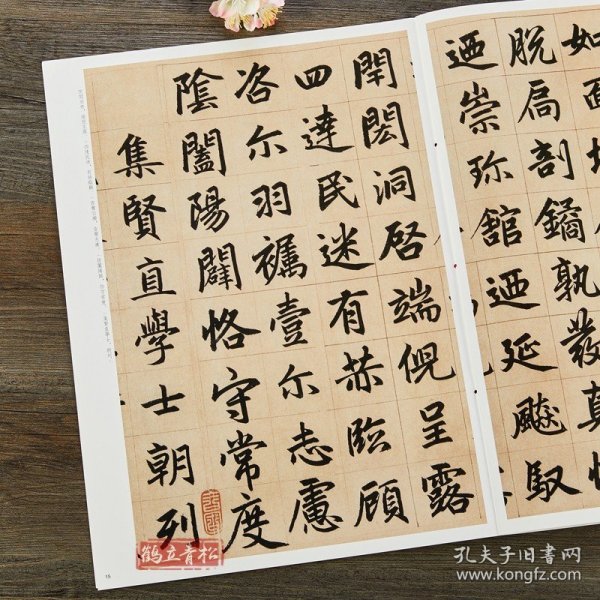 如面
脱扃剖鐍孰發真
迺崇琛館迺延飈馭
閈閎洞啓端倪呈露
四達民迷有赫臨顧
咨尒羽襕壹尒志慮
陰闔陽闢恪守常度
集賢直學士朝列
16
鹤立青松
孔夫子旧书网
www.kongfz.com